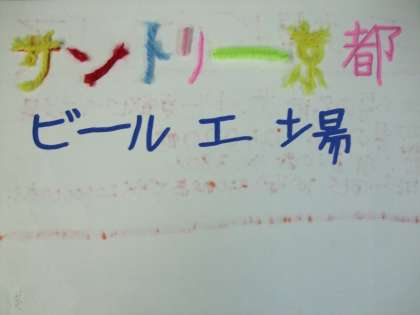 サントリー京都
ビール工場